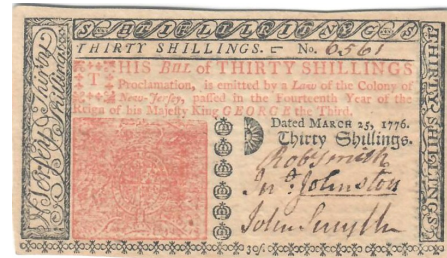 SHILLINGS
THIRTY SHILLINGS. No. 6561
THIS BILL of THIRTY SHILLINGS
Proclamation, is emitted by a Law of the Colony of
New-Jersey, passed in the Fourteenth Year of the
Reign of his Majesty King GEORGE the Third.
Dated MARCH 25, 1776.
Thirty Shillings.
Robt Smith
Jno Johnston
John Smyth
30s.
Thirty Shillings
THIRTY SHILLINGS.